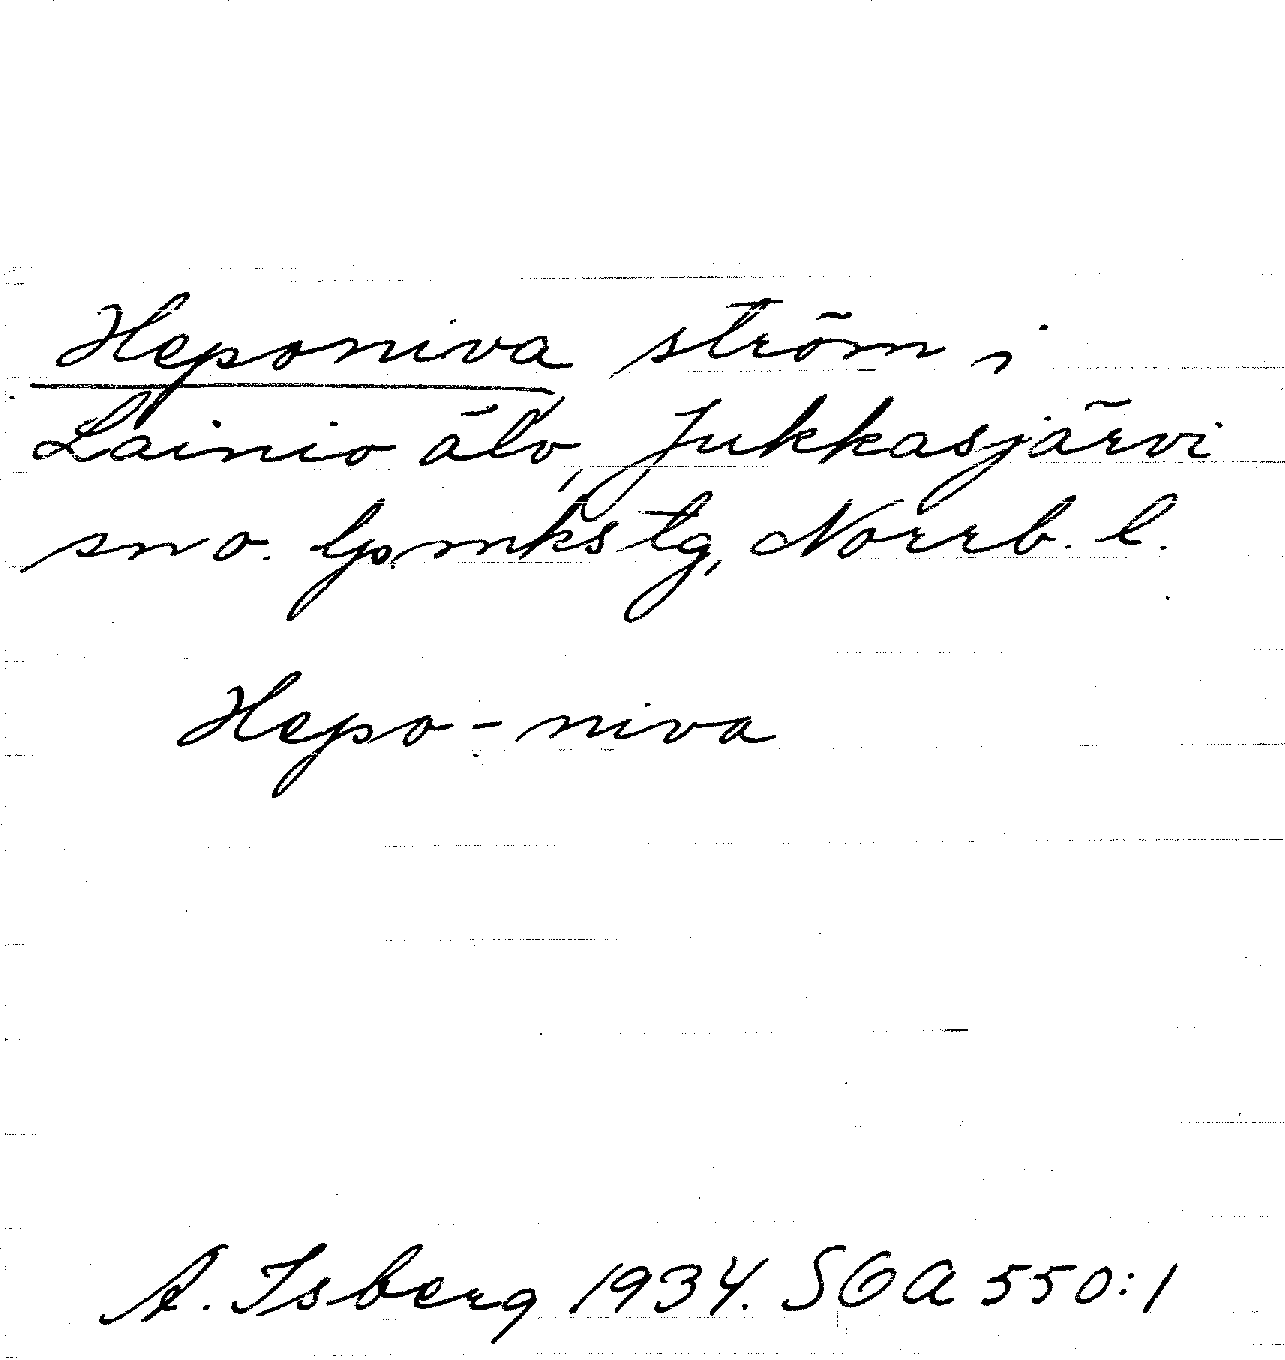 Heponiva ström i
Lainio älv, Jukkasjärvi
sno. lpmkstg, Norrb. l.
Hepo-niva
A. Isberg 1934. SOA 550:1